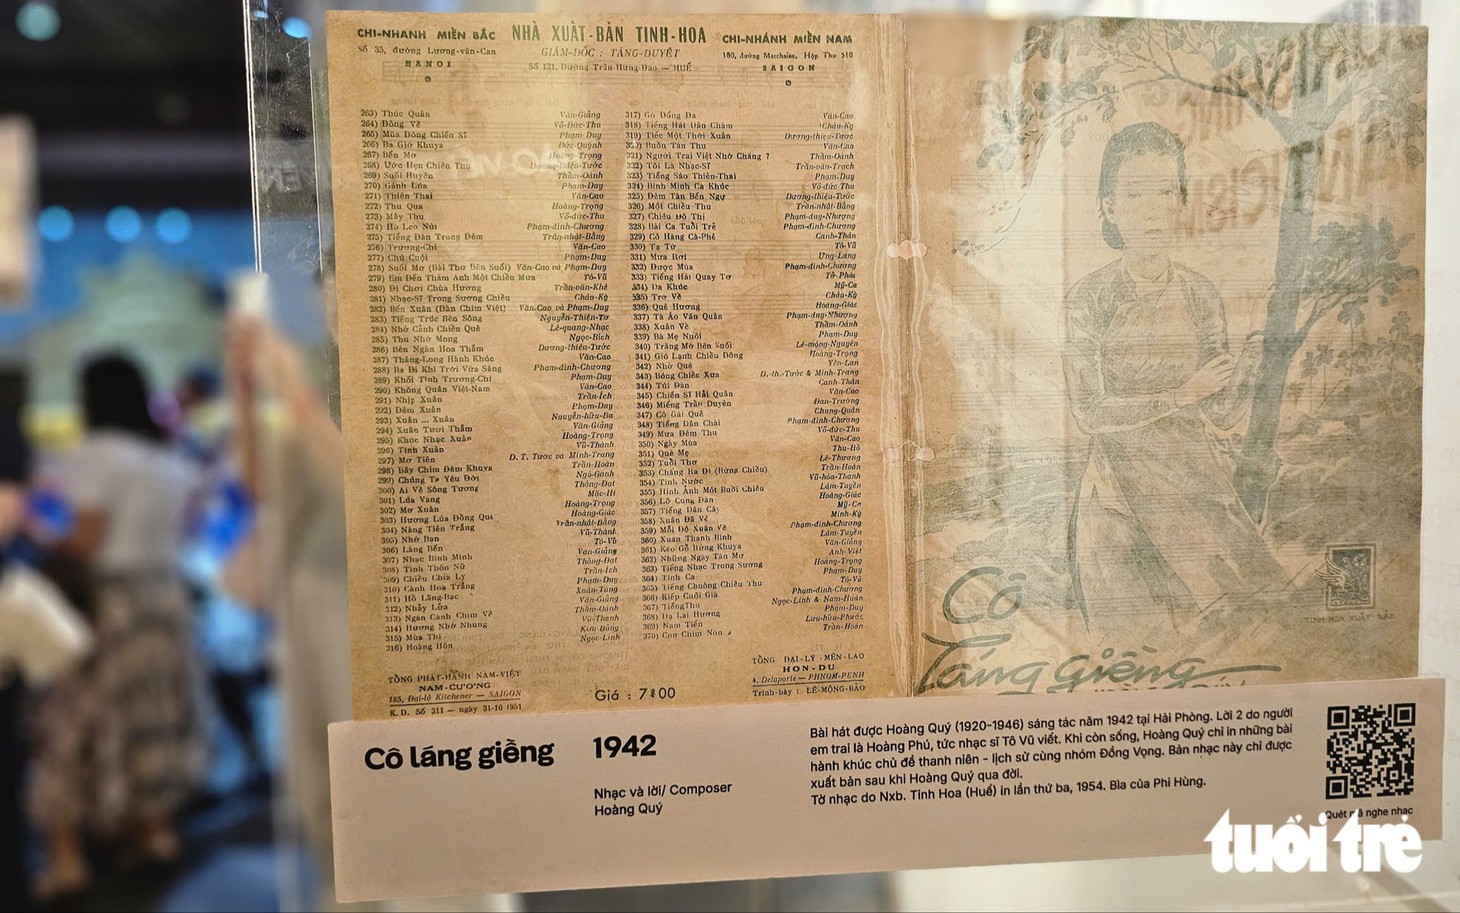 CHI-NHANH MIỀN BẮC
Số 35, đường Lương-văn-Can
HANOI
NHÀ XUẤT-BẢN TINH-HOA
GIÁM-ĐỐC : TĂNG-DUYỆT
Số 121, Đường Trần-Hưng-Đạo — HUẾ
CHI-NHÁNH MIỀN NAM
180, đường Marchaise, Hộp Thư 510
SAIGON
263) Thúc Quân Văn-Giảng
264) Đông Về Võ-Đức-Thu
265) Mùa Đông Chiến Sĩ Phạm-Duy
266) Ba Giờ Khuya Đức-Quỳnh
267) Bến Mơ Hoàng-Trọng
268) Ước Hẹn Chiều Thu Dương-thiệu-Tước
269) Suối Huyền Thẩm-Oánh
270) Gánh Lúa Phạm-Duy
271) Thiên Thai Văn-Cao
272) Thu Qua Hoàng-Trọng
273) Mây Thu Võ-đức-Thu
274) Hò Leo Núi Phạm-đình-Chương
275) Tiếng Đàn Trong Đêm Trần-nhật-Bằng
276) Trương-Chi Văn-Cao
277) Chú Cuội Phạm-Duy
278) Suối Mơ (Bài Thơ Bên Suối) Văn-Cao và Phạm-Duy
279) Em Đến Thăm Anh Một Chiều Mưa Tô-Vũ
280) Đi Chơi Chùa Hương Trần-văn-Khê
281) Nhạc-Sĩ Trong Sương Chiều Châu-Kỳ
282) Bến Xuân (Đàn Chim Việt) Văn-Cao và Phạm-Duy
283) Tiếng Trúc Bên Sông Nguyễn-Thiện-Tơ
284) Nhớ Cảnh Chiều Quê Lê-quang-Nhạc
285) Thu Nhớ Mong Ngọc-Bích
286) Bên Ngàn Hoa Thắm Dương-thiệu-Tước
287) Thăng-Long Hành Khúc Văn-Cao
288) Ra Đi Khi Trời Vừa Sáng Phạm-đình-Chương
289) Khối Tình Trương-Chi Phạm-Duy
290) Không Quân Việt-Nam Văn-Cao
291) Nhịp Xuân Trần-Ích
292) Đêm Xuân Phạm-Duy
293) Xuân ... Xuân Nguyễn-hữu-Ba
294) Xuân Tươi Thắm Văn-Giảng
295) Khúc Nhạc Xuân Hoàng-Trọng
296) Tình Xuân Vũ-Thành
297) Mơ Tiên D. T. Tước và Minh-Trang
298) Bầy Chim Đêm Khuya Trần-Hoàn
299) Chúng Ta Yêu Đời Ngô-Ganh
300) Ai Về Sông Tương Thông-Đạt
301) Lúa Vàng
302) Mơ Xuân Hoàng-Trọng
303) Hương Lúa Đồng Quê Hoàng-Giác
304) Nàng Tiên Trắng Trần-nhật-Bằng
305) Nhớ Bạn Vũ-Thành
306) Làng Bến Tô-Vũ
307) Nhạc Bình Minh Văn-Giảng
308) Tình Thôn Nữ Thông-Đạt
309) Chiều Chia Ly Trần-Ích
310) Cánh Hoa Trắng Phạm-Duy
311) Hồ Lãng-Bạc Xuân-Tùng
312) Nhảy Lửa Văn-Giảng
313) Ngàn Cánh Chim Về Thẩm-Oánh
314) Hương Nhớ Nhung Vũ-Thanh
315) Mùa Thi
316) Hoàng Hôn Ngọc-Linh
317) Gò Đống Đa Văn-Cao
318) Tiếng Hát Dân Chàm Châu-Kỳ
319) Tiếc Một Thời Xuân Dương-thiệu-Tước
320) Buồn Tàn Thu Văn-Cao
321) Người Trai Việt Nhớ Chăng ? Thẩm-Oánh
322) Tôi Là Nhạc-Sĩ Trần-văn-Trạch
323) Tiếng Sáo Thiên-Thai Phạm-Duy
324) Bình Minh Ca Khúc Võ-đức-Thu
325) Đêm Tàn Bến Ngự Dương-thiệu-Tước
326) Một Chiều Thu Trần-nhật-Bằng
327) Chiều Đô Thị Phạm-duy-Nhượng
328) Bài Ca Tuổi Trẻ Phạm-đình-Chương
329) Cô Hàng Cà-Phê Canh-Thân
330) Tạ Từ Tô-Vũ
331) Mưa Rơi Ưng-Lang
332) Được Mùa Phạm-đình-Chương
333) Tiếng Hát Quay Tơ
334) Dạ Khúc Mỹ-Ca
335) Trở Về Châu-Kỳ
336) Quê Hương Hoàng-Giác
337) Tà Áo Văn Quân Phạm-duy-Nhượng
338) Xuân Về Thẩm-Oánh
339) Bà Mẹ Nuôi Phạm-Duy
340) Trăng Mờ Bên Suối Lê-mộng-Nguyên
341) Gió Lạnh Chiều Đông Hoàng-Trọng
342) Nhớ Quê Yên-Lan
343) Bóng Chiều Xưa D.-th.-Tước & Minh-Trang
344) Túi Đàn Canh-Thân
345) Chiến Sĩ Hải Quân Văn-Cao
346) Miếng Trầu Duyên Đan-Trường
347) Cô Gái Quê Chung-Quân
348) Tiếng Dân Chài Phạm-đình-Chương
349) Mưa Đêm Thu Võ-đức-Thu
350) Ngày Mùa Văn-Cao
351) Quê Mẹ Thu-Hồ
352) Tuổi Thơ Lê-Thương
353) Chàng Ra Đi (Rừng Chiều) Trần-Hoàn
354) Tình Nước Vũ-hòa-Thanh
355) Hình Ảnh Một Buổi Chiều Lâm-Tuyền
356) Lỡ Cung Đàn Hoàng-Giác
357) Tiếng Dân Cày Mỹ-Ca
358) Xuân Đã Về Minh-Kỳ
359) Mỗi Độ Xuân Về Phạm-đình-Chương
360) Xuân Thanh Bình Lâm-Tuyền
361) Kéo Gỗ Rừng Khuya Văn-Giảng
362) Những Ngày Tàn Mơ Anh-Việt
363) Tiếng Nhạc Trong Sương Hoàng-Trọng
364) Tình Ca Phạm-Duy
365) Tiếng Chuông Chiều Thu Tô-Vũ
366) Kiếp Cuội Già Phạm-đình-Chương
367) Tiếng Thu Ngọc-Linh & Nam-Huân
368) Dạ Lai Hương Phạm-Duy
369) Nam Tiến Lưu-hữu-Phước
370) Con Chim Non Trần-Hoàn
TỔNG PHÁT-HÀNH NAM-VIỆT
NAM-CƯỜNG
185, Đại-lộ Kitchener — SAIGON
K. D. Số 311 — ngày 31-10 1951
Giá : 7$00
TỔNG ĐẠI-LÝ : MÊN-LAO
HON-DU
4, Delaporte — PHNOM-PENH
Trình-bày : LÊ-MỘNG-BẢO
Cô
Láng giềng
TINH-HOA XUẤT-BẢN
Cô láng giềng
1942
Nhạc và lời/ Composer
Hoàng Quý
Bài hát được Hoàng Quý (1920-1946) sáng tác năm 1942 tại Hải Phòng. Lời 2 do người
em trai là Hoàng Phú, tức nhạc sĩ Tô Vũ viết. Khi còn sống, Hoàng Quý chỉ in những bài
hành khúc chủ đề thanh niên - lịch sử cùng nhóm Đồng Vọng. Bản nhạc này chỉ được
xuất bản sau khi Hoàng Quý qua đời.
Tờ nhạc do Nxb. Tinh Hoa (Huế) in lần thứ ba, 1954. Bìa của Phi Hùng.
Quét mã nghe nhạc
tuổi trẻ